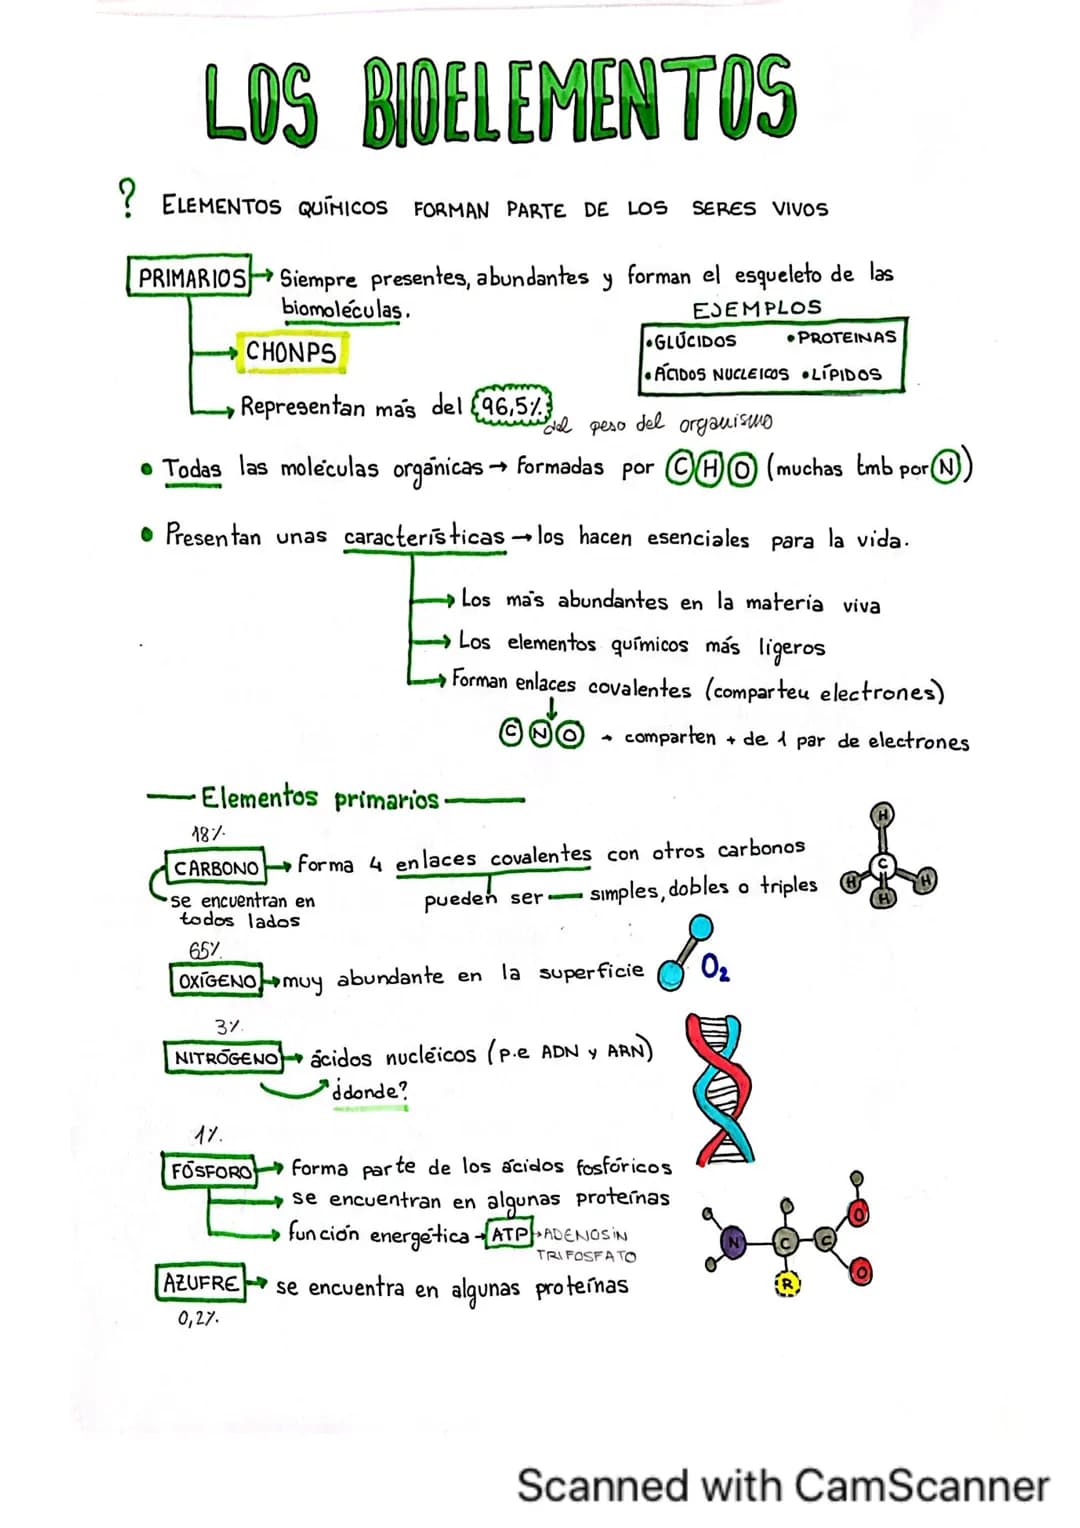 LOS BIOELEMENTOS
? ELEMENTOS QUÍMICOS FORMAN PARTE DE LOS SERES VIVOS
PRIMARIOS → Siempre presentes, abundantes y forman el esqueleto de las
biomoléculas.
EJEMPLOS
• GLÚCIDOS • PROTEINAS
• ÁCIDOS NUCLEICOS • LÍPIDOS
→ CHONPS
→ Representan más del 96,5%
del peso del organismo
• Todas las moléculas orgánicas → formadas por C H O (muchas tmb por N)
• Presentan unas características → los hacen esenciales para la vida.
→ Los más abundantes en la materia viva
→ Los elementos químicos más ligeros
→ Forman enlaces covalentes (comparten electrones)
↓
C N O → comparten + de 1 par de electrones
— Elementos primarios —
18%
CARBONO → forma 4 enlaces covalentes con otros carbonos
pueden ser — simples, dobles o triples
se encuentran en
todos lados
H
C
H H H
65%
OXÍGENO → muy abundante en la superficie
O2
3%
NITRÓGENO → ácidos nucléicos (p.e ADN y ARN)
¿donde?
1%
FÓSFORO → forma parte de los ácidos fosfóricos
→ se encuentran en algunas proteínas
→ función energética → ATP → ADENOSIN
TRIFOSFATO
N C C O O
R
AZUFRE → se encuentra en algunas proteínas
0,2%
Scanned with CamScanner